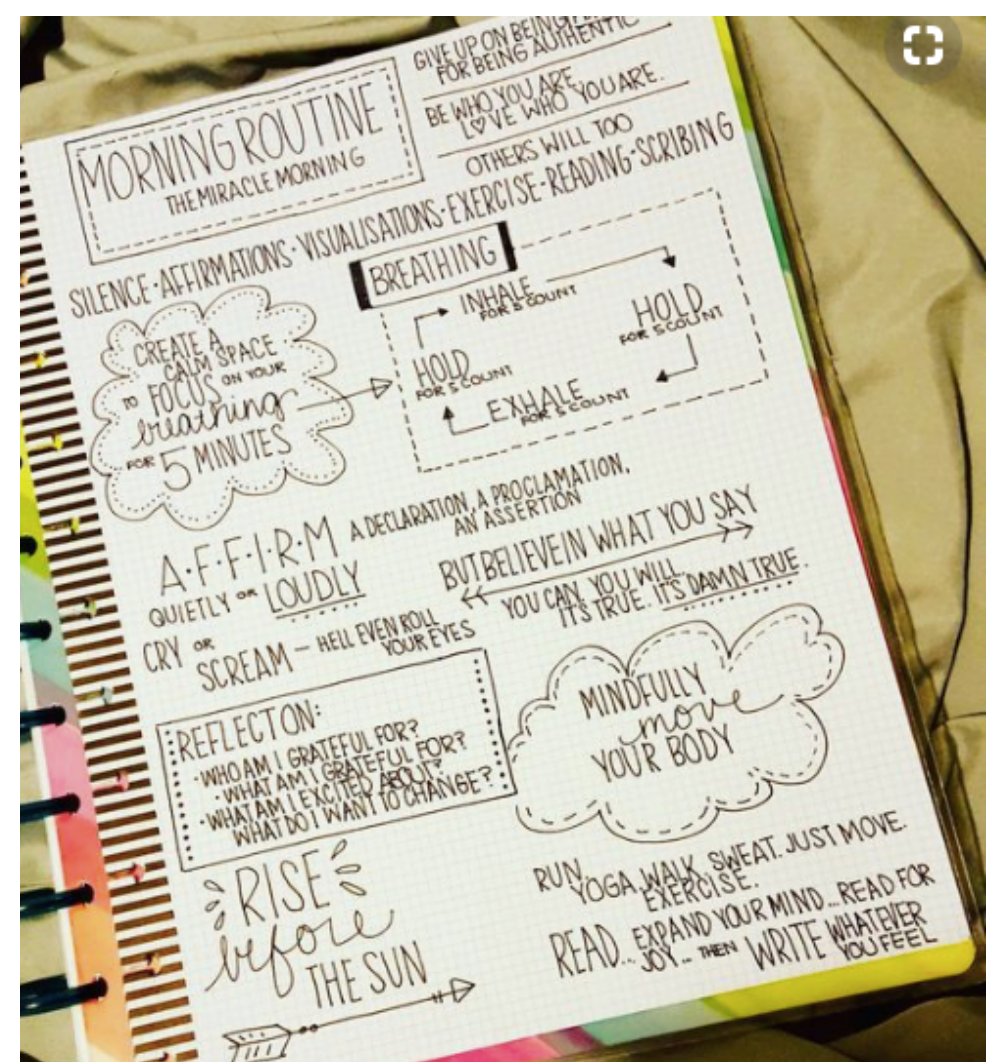 MORNING ROUTINE
THE MIRACLE MORNING
GIVE UP ON BEING
FOR BEING AUTHENTIC
BE WHO YOU ARE.
LOVE WHO YOU ARE.
OTHERS WILL TOO
SILENCE·AFFIRMATIONS·VISUALISATIONS·EXERCISE·READING·SCRIBING
CREATE A
CALM SPACE
TO FOCUS ON YOUR
breathing
FOR 5 MINUTES
BREATHING
INHALE
FOR 5 COUNT
HOLD
FOR 5 COUNT
EXHALE
FOR 5 COUNT
HOLD
FOR 5 COUNT
A·F·F·I·R·M
QUIETLY OR LOUDLY
A DECLARATION, A PROCLAMATION,
AN ASSERTION
BUT BELIEVE IN WHAT YOU SAY
YOU CAN. YOU WILL.
IT'S TRUE. IT'S DAMN TRUE.
CRY OR
SCREAM — HELL EVEN ROLL
YOUR EYES
REFLECTON:
·WHO AM I GRATEFUL FOR?
·WHAT AM I GRATEFUL FOR?
·WHAT AM I EXCITED ABOUT?
WHAT DO I WANT TO CHANGE?
MINDFULLY
move
YOUR BODY
RISE
before
THE SUN
RUN. YOGA. WALK. SWEAT. JUST MOVE.
EXERCISE.
READ... EXPAND YOUR MIND...READ FOR
JOY... THEN WRITE WHATEVER
YOU FEEL